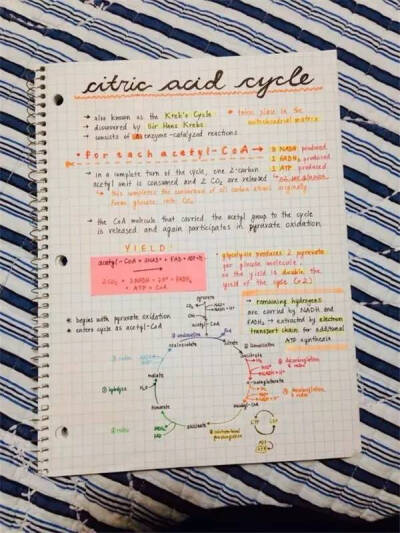 citric acid cycle
→ also known as the Kreb's Cycle
→ discovered by Sir Hans Krebs
→ consists of 8 enzyme-catalyzed reactions
* takes place in the
mitochondrial matrix
* for each acetyl-CoA →
3 NADH produced
1 FADH₂ produced
1 ATP produced
→ in a complete turn of the cycle, one 2-carbon
acetyl unit is consumed and 2 CO₂ are released
↳ this completes the conversion of all carbon atoms originally
from glucose into CO₂
→ the CoA molecule that carried the acetyl group to the cycle
is released and again participates in pyruvate oxidation
YIELD:
acetyl-CoA + 3NAD⁺ + FAD + ADP + Pi
→
2CO₂ + 3NADH + 3H⁺ + FADH₂
+ ATP + CoA
* glycolysis produces 2 pyruvate
per glucose molecule
so the yield is double the
yield of the cycle (×2)
* begins with pyruvate oxidation
→ enters cycle as acetyl-CoA
→ remaining hydrogens
are carried by NADH and
FADH₂ → extracted by electron
transport chain for additional
ATP synthesis
pyruvate
acetyl-CoA
oxaloacetate
citrate
isocitrate
malate
fumarate
succinate